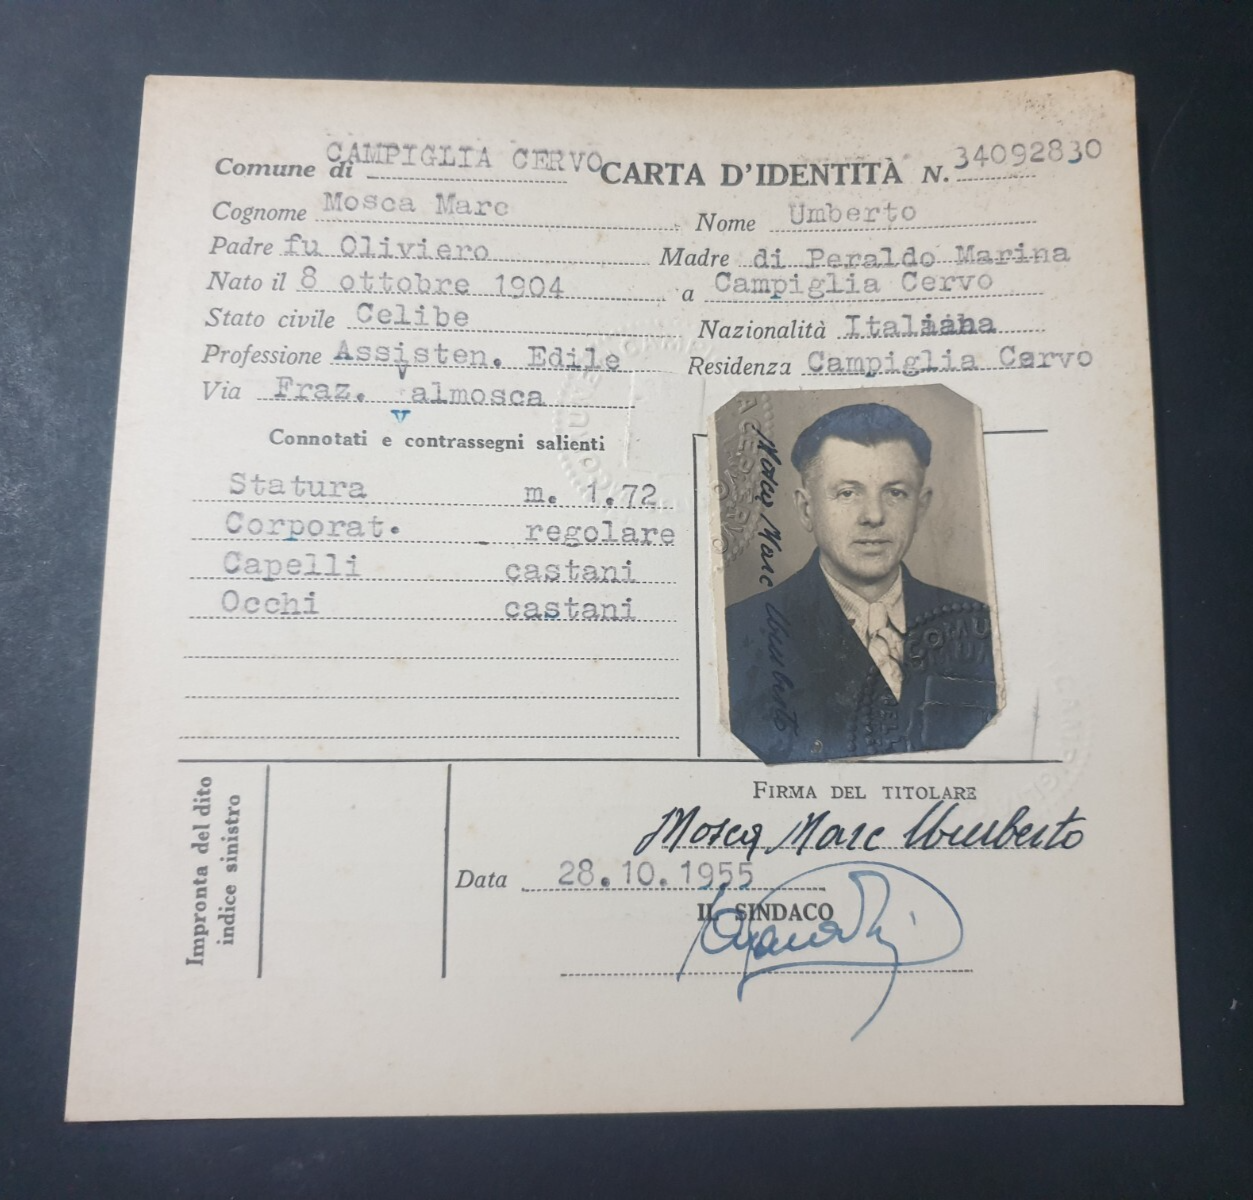 Comune di CAMPIGLIA CERVO CARTA D'IDENTITÀ N. 34092830
Cognome Mosca Marc Nome Umberto
Padre fu Oliviero Madre di Peraldo Marina
Nato il 8 ottobre 1904 a Campiglia Cervo
Stato civile Celibe Nazionalità Italiana
Professione Assisten. Edile Residenza Campiglia Cervo
Via Fraz. Valmosca
Connotati e contrassegni salienti
Statura m. 1.72
Corporat. regolare
Capelli castani
Occhi castani
Mosca Marc Umberto
COMU
Impronta del dito
indice sinistro
FIRMA DEL TITOLARE
Mosca Marc Umberto
Data 28.10.1955
IL SINDACO